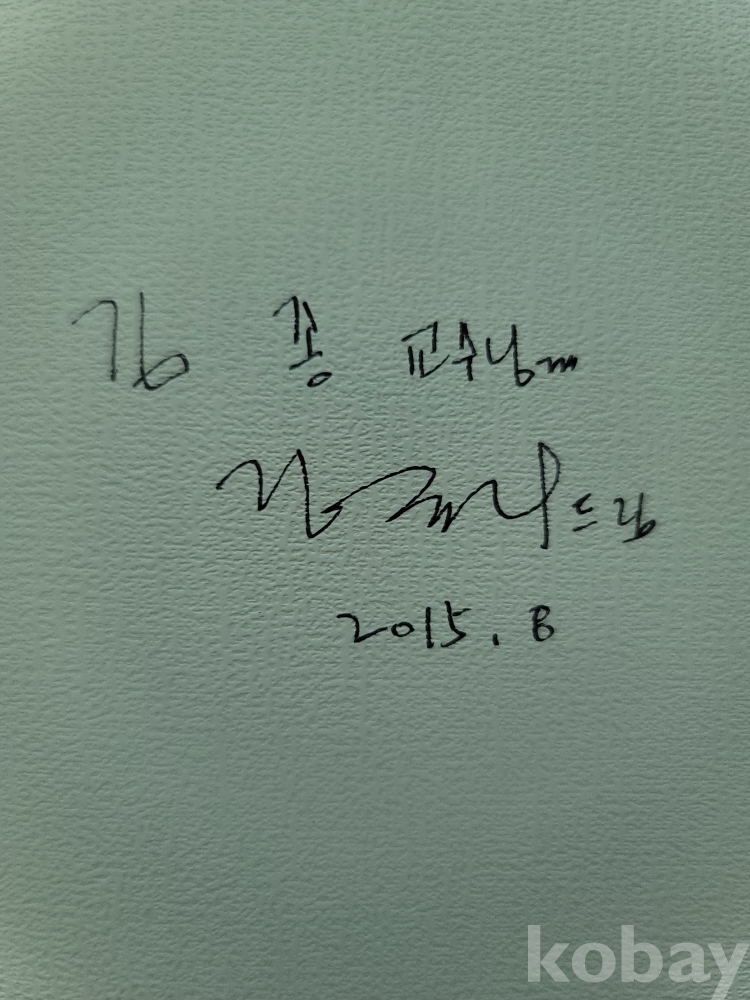 김 종 교수님
드림
2015. 8
kobay